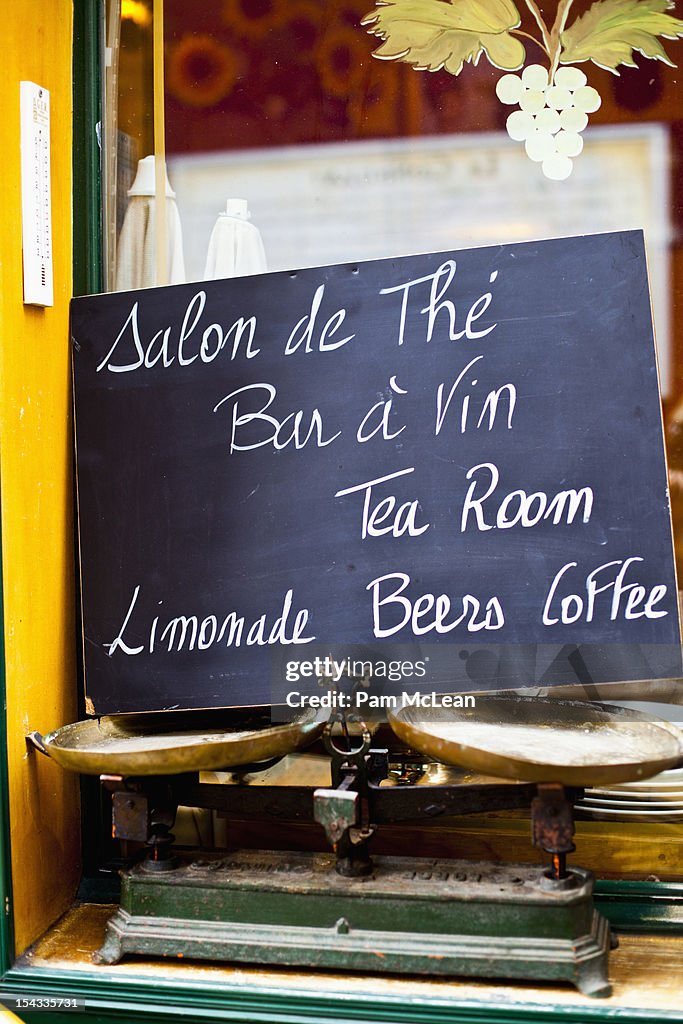 Salon de Thé
Bar à Vin
Tea Room
Limonade Beers Coffee
gettyimages®
Pam McLean
154335731